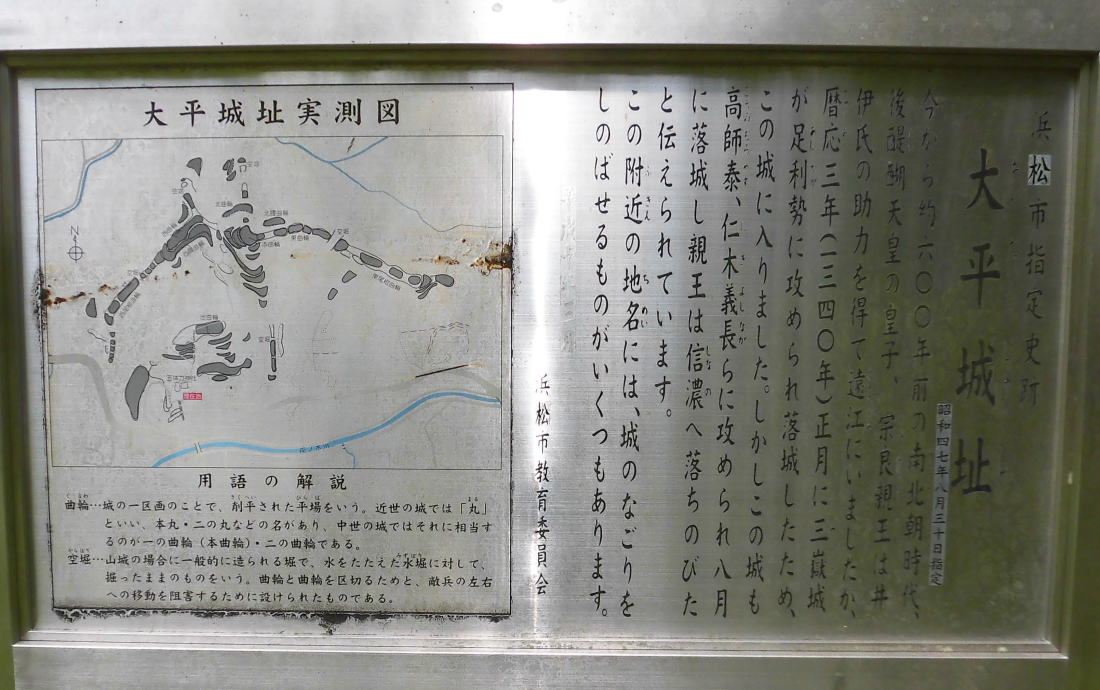 浜松市指定史跡
大平城址
昭和四七年八月三十日指定
今から約六〇〇年前の南北朝時代、
後醍醐天皇の皇子、宗良親王は井
伊氏の助力を得て遠江にいましたが、
暦応三年(一三四〇年)正月に三嶽城
が足利勢に攻められ落城したため、
この城に入りました。しかしこの城も
高師泰、仁木義長らに攻められ八月
に落城し親王は信濃へ落ちのびた
と伝えられています。
この附近の地名には、城のなごりを
しのばせるものがいくつもあります。
浜松市教育委員会
大平城址実測図
N
空堀
空堀
北曲輪
空堀
東曲輪
本曲輪
空堀
東尾根曲輪
空堀
西曲輪
出曲輪
空堀
五体力神社
現在地
用語の解説
曲輪…城の一区画のことで、削平された平場をいう。近世の城では「丸」
といい、本丸・二の丸などの名があり、中世の城ではそれに相当す
るのが一の曲輪(本曲輪)・二の曲輪である。
空堀…山城の場合に一般的に造られる堀で、水をたたえた水堀に対して、
掘ったままのものをいう。曲輪と曲輪を区切るためと、敵兵の左右
への移動を阻害するために設けられたものである。